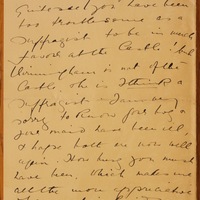 you have been
too troublesome as a
Suffragist to be in much
favour at the Castle! but
Birmingham is not of the
Castle, she is I think a
Suffragist. I am
sorry to know you &
maid have been ill,
I hope both are now well
again. How busy you must
have been. Which makes me
all the more appreciative